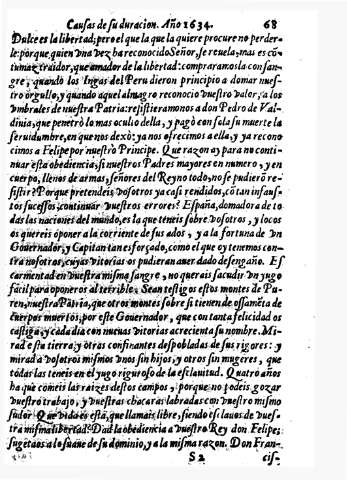 Causas de su duracion. Año 1634. 68
Dulce es la libertad; pero el que la que la quiere procure no perder-
le: porque quien vna vez ha reconocido Señor, se reuela; mas es cõ-
tumaz traidor, que amador de la libertad: compraramosla con san-
gre, quando los Ingas del Peru dieron principio a domar nues-
tro orgullo, y quando aquel almagro reconocio vuestro valor, a los
vmbrales de nuestra Patria: resistieramonos a don Pedro de Val-
diuia, que penetrò lo mas oculto della, y pagò con sola su muerte la
seruidumbre, en que nos dexò: ya nos ofrecimos a ella, y ya recono
cimos a Felipe por nuestro Principe. Que razon ay para no conti-
nuar esta obediencia, si nuestros Padres mayores en numero, y en
cuerpo, llenos de armas, señores del Reyno todo, no se pudierõ re-
sistir? Porque pretendeis vosotros ya casi rendidos, cõ tan infaus-
tos sucessos, continuar vuestros errores? España, domadora de to
das las naciones del mundo, es la que teneis sobre vosotros, y locos
os quereis oponer a la corriente de sus ados, y a la fortuna de vn
Gouernador, y Capitan tan esforçado, como el que oy tenemos con-
tra nosotros, cuyas vitorias os pudieran auer dado desengaño. Es
carmentad en vuestra misma sangre, no querais sacudir vn yugo
facil para oponeros al terrible. Sean testigos estos montes de Pu-
ren, nuestra Patria, que otros montes sobre si tienen de ossamẽta de
cuerpos muertos, por este Gouernador, que con tanta felicidad os
castiga, y cada dia con nueuas vitorias acrecienta su nombre. Mi-
rad esta tierra, y otras confinantes despobladas de sus rigores: y
mirad a vosotros mismos vnos sin hijos, y otros sin mugeres, que
todas las teneis en el yugo riguroso de la esclauitud. Quatro años
ha que comeis las raizes destos campos, porque no podeis gozar
vuestro trabajo, y vuestras chacaras labradas con vuestro mismo
sudor. Que vida es esta, que llamais libre, siendo esclauos de vues-
tra misma libertad? Dad la obediencia a vuestro Rey don Felipe;
sugetaos a lo suaue de su dominio, y a la misma razon. Don Fran-
S2 cis-